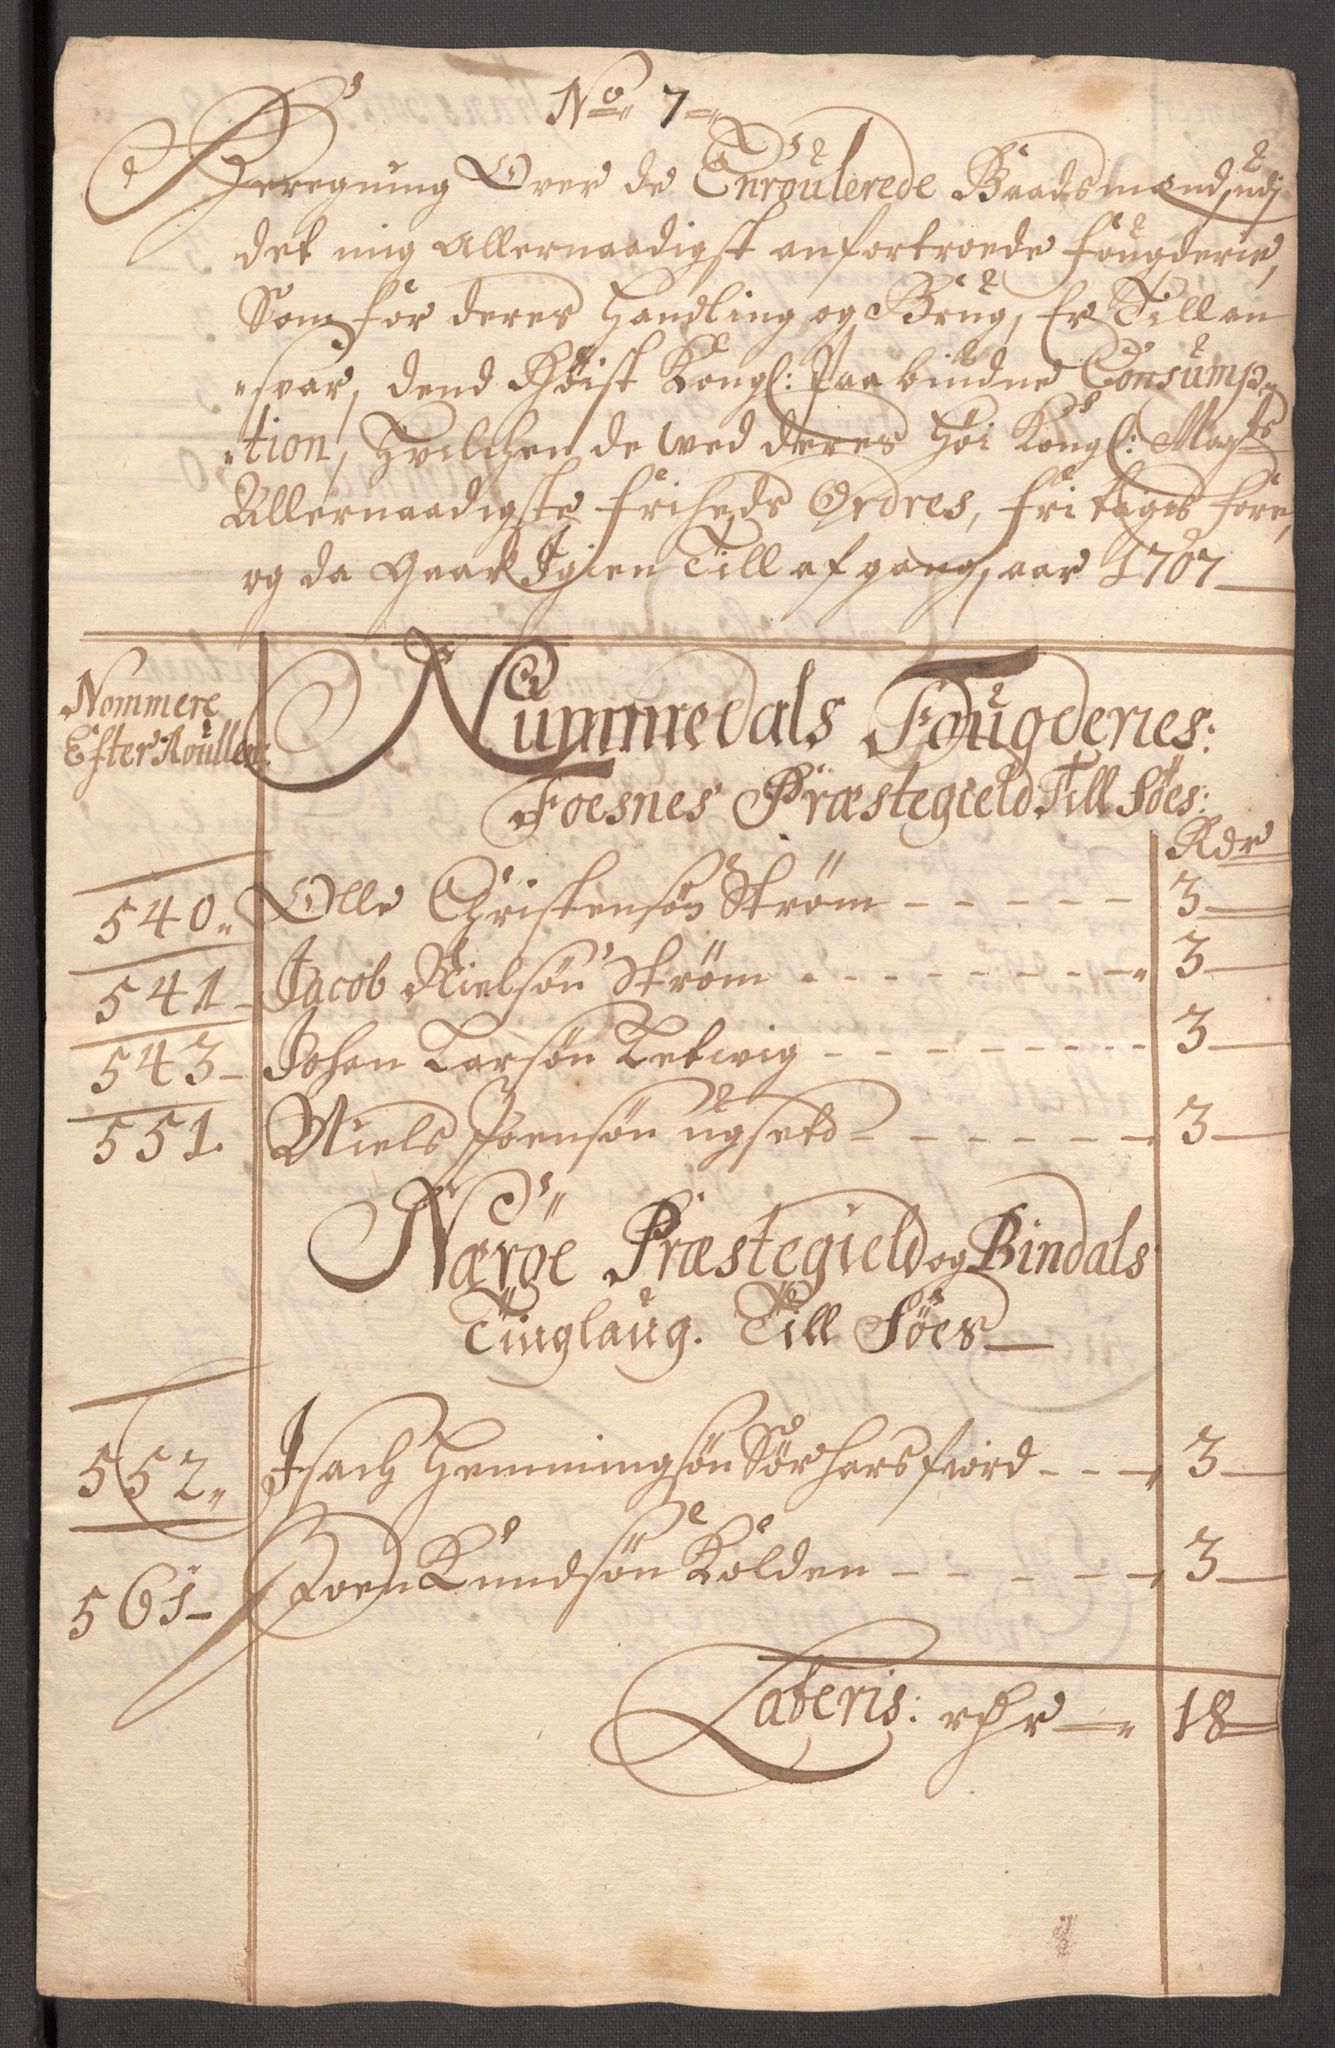 No 7
Beregning Over de Enroulerede Baadsmænd, udj
det mig allernaadigst anfortroede fougderie,
Som for deres Handling og Brug, Er Till an
svar, dend Høist Kongl: Paabudne Consump-
tion, Hvilchen de wed deres Høi Kongl: Mayts
Allernaadigste friheds Ordres, fritages fore,
og da gaar Igien Till afgang, aar 1707
Nommere
Efter Roullen:
Nummedals Fougderies:
Foesnes Præstegield Till Søes:
Rdr
540 Olle Christensøn Strøm 3
541 Jacob Nielsøn Strøm 3
543 Johan Larsøn Ketwig 3
551 Niels Joensøn ugseto 3
Nærøe Præstegield og Bindals
Tinglaug. Till Søes
552 Isach Hemmingsøn Sørhorsfiord 3
561 Joen Knudsøn Kolden 3
Lateris: rdr 18